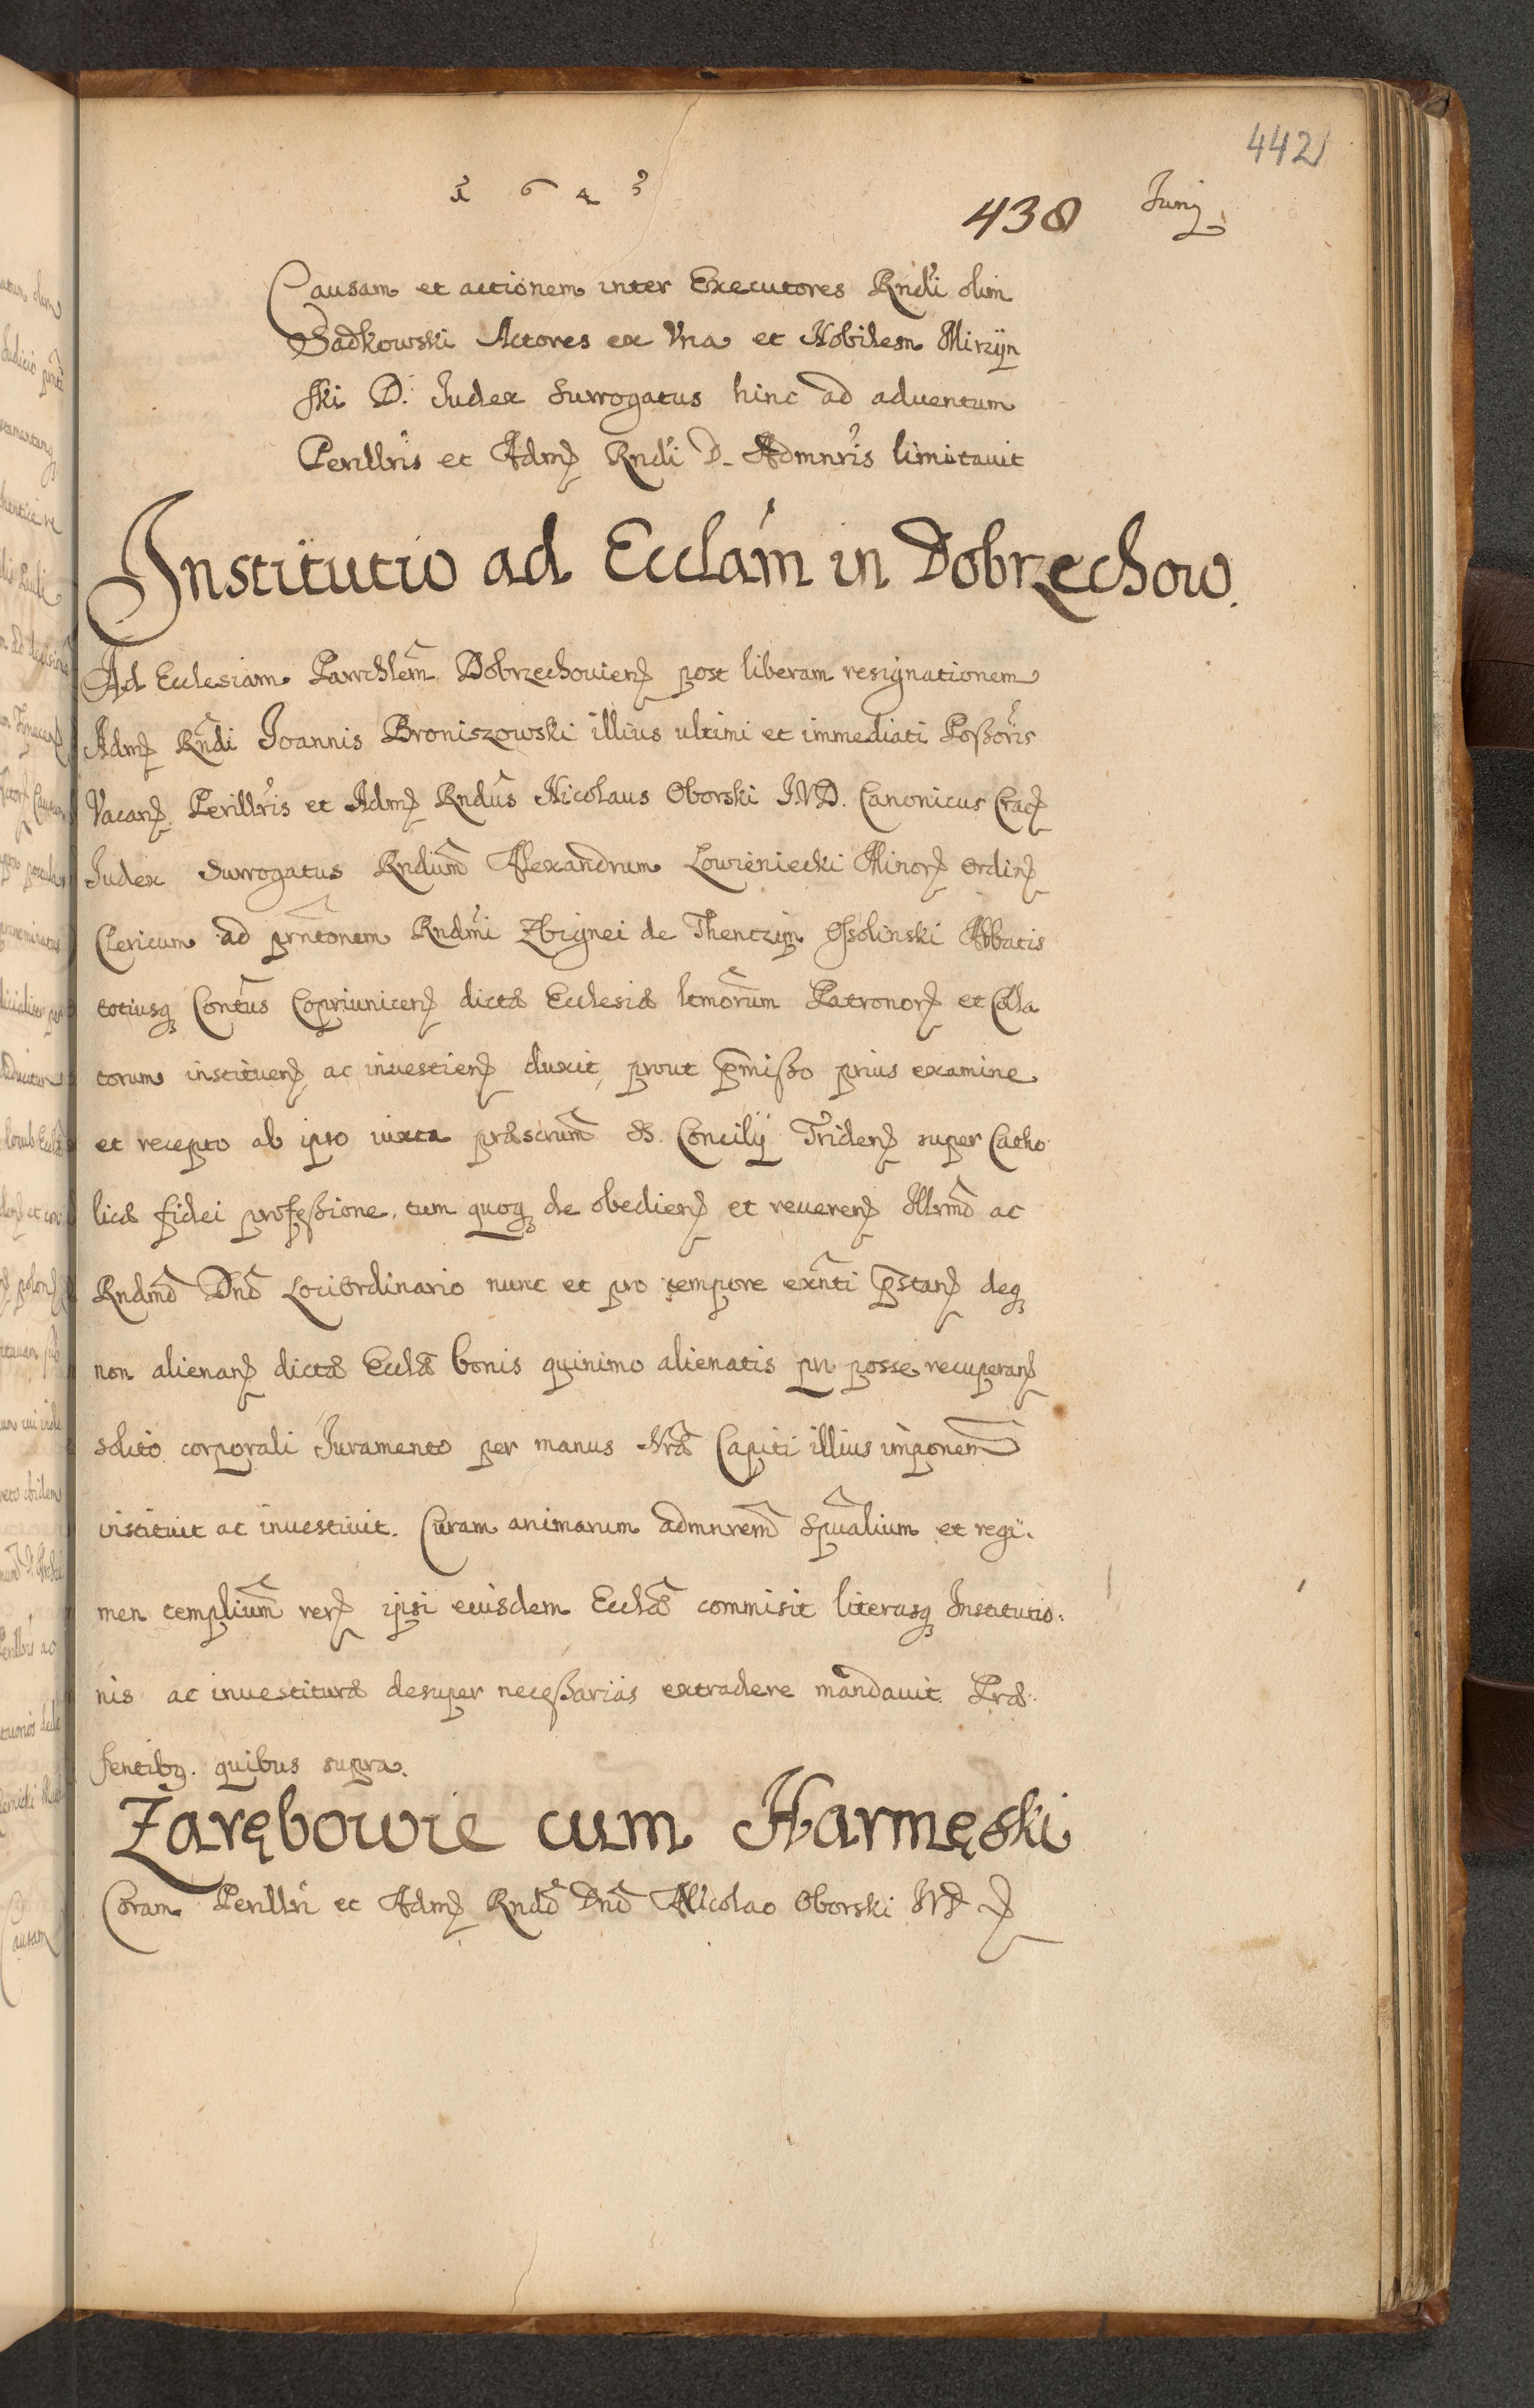 442
1643
438 Junij
Causam et actionem inter Executores Rndi olim
Sadkowski Actores ex Vna et Nobilem Mirzÿn
ski D. Judex Surrogatus hinc ad aduentum
Perillris et Adm Rndi D. Admnris limitauit
Institutio ad Ecclam in Dobrzechow.
Ad Ecclesiam Parrchlem Dobrzechouien post liberam resignationem
Adm Rndi Joannis Broniszowski illius ultimi et immediati Poßoris
Vacan Perillris et Adm Rndus Nicolaus Oborski I.V.D. Canonicus Crac
Judex Surrogatus Rndum Alexandrum Lowieniecki Minor ordin
Clericum ad prntonem Rndmi Zbignei de Thenczyn Ossolinski Abbatis
totiusq Contus Copriunicen dictæ Ecclesiæ ltmorum Patronor et Colla
torum instituen ac inuestien duxit, prout pmißo prius examine
et recepto ab ipso iuxta præscrum S. Concilÿ Triden super Catho
licæ fidei profeßione, tum quoq de obedien et reueren Illrmo ac
Rndmo Dno Loci Ordinario nunc et pro tempore exnti pstan deq
non alienan dictæ Ecclæ bonis quinimo alienatis pro posse recuperan
solito corporali Juramento per manus Nræ Capiti illius imponem
instituit ac inuestiuit. Curam animarum admnrem spualium et regi:
men templium rer ipsi euisdem Ecclæ commisit literasq Institutio:
nis ac inuestituræ desuper neceßarias extradere mandauit. Præ:
sentibq. quibus supra.
Zarębowie cum Harmęski
Coram Perillri et Adm Rndo Dno Nicolao Oborski IVD